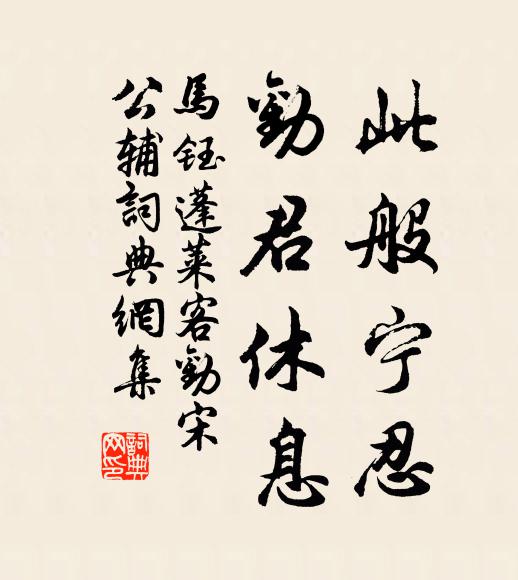 此般宁忍
勸君休息
馬鈺蓬萊客勸宋
公輔詞典網集
詞典
网印